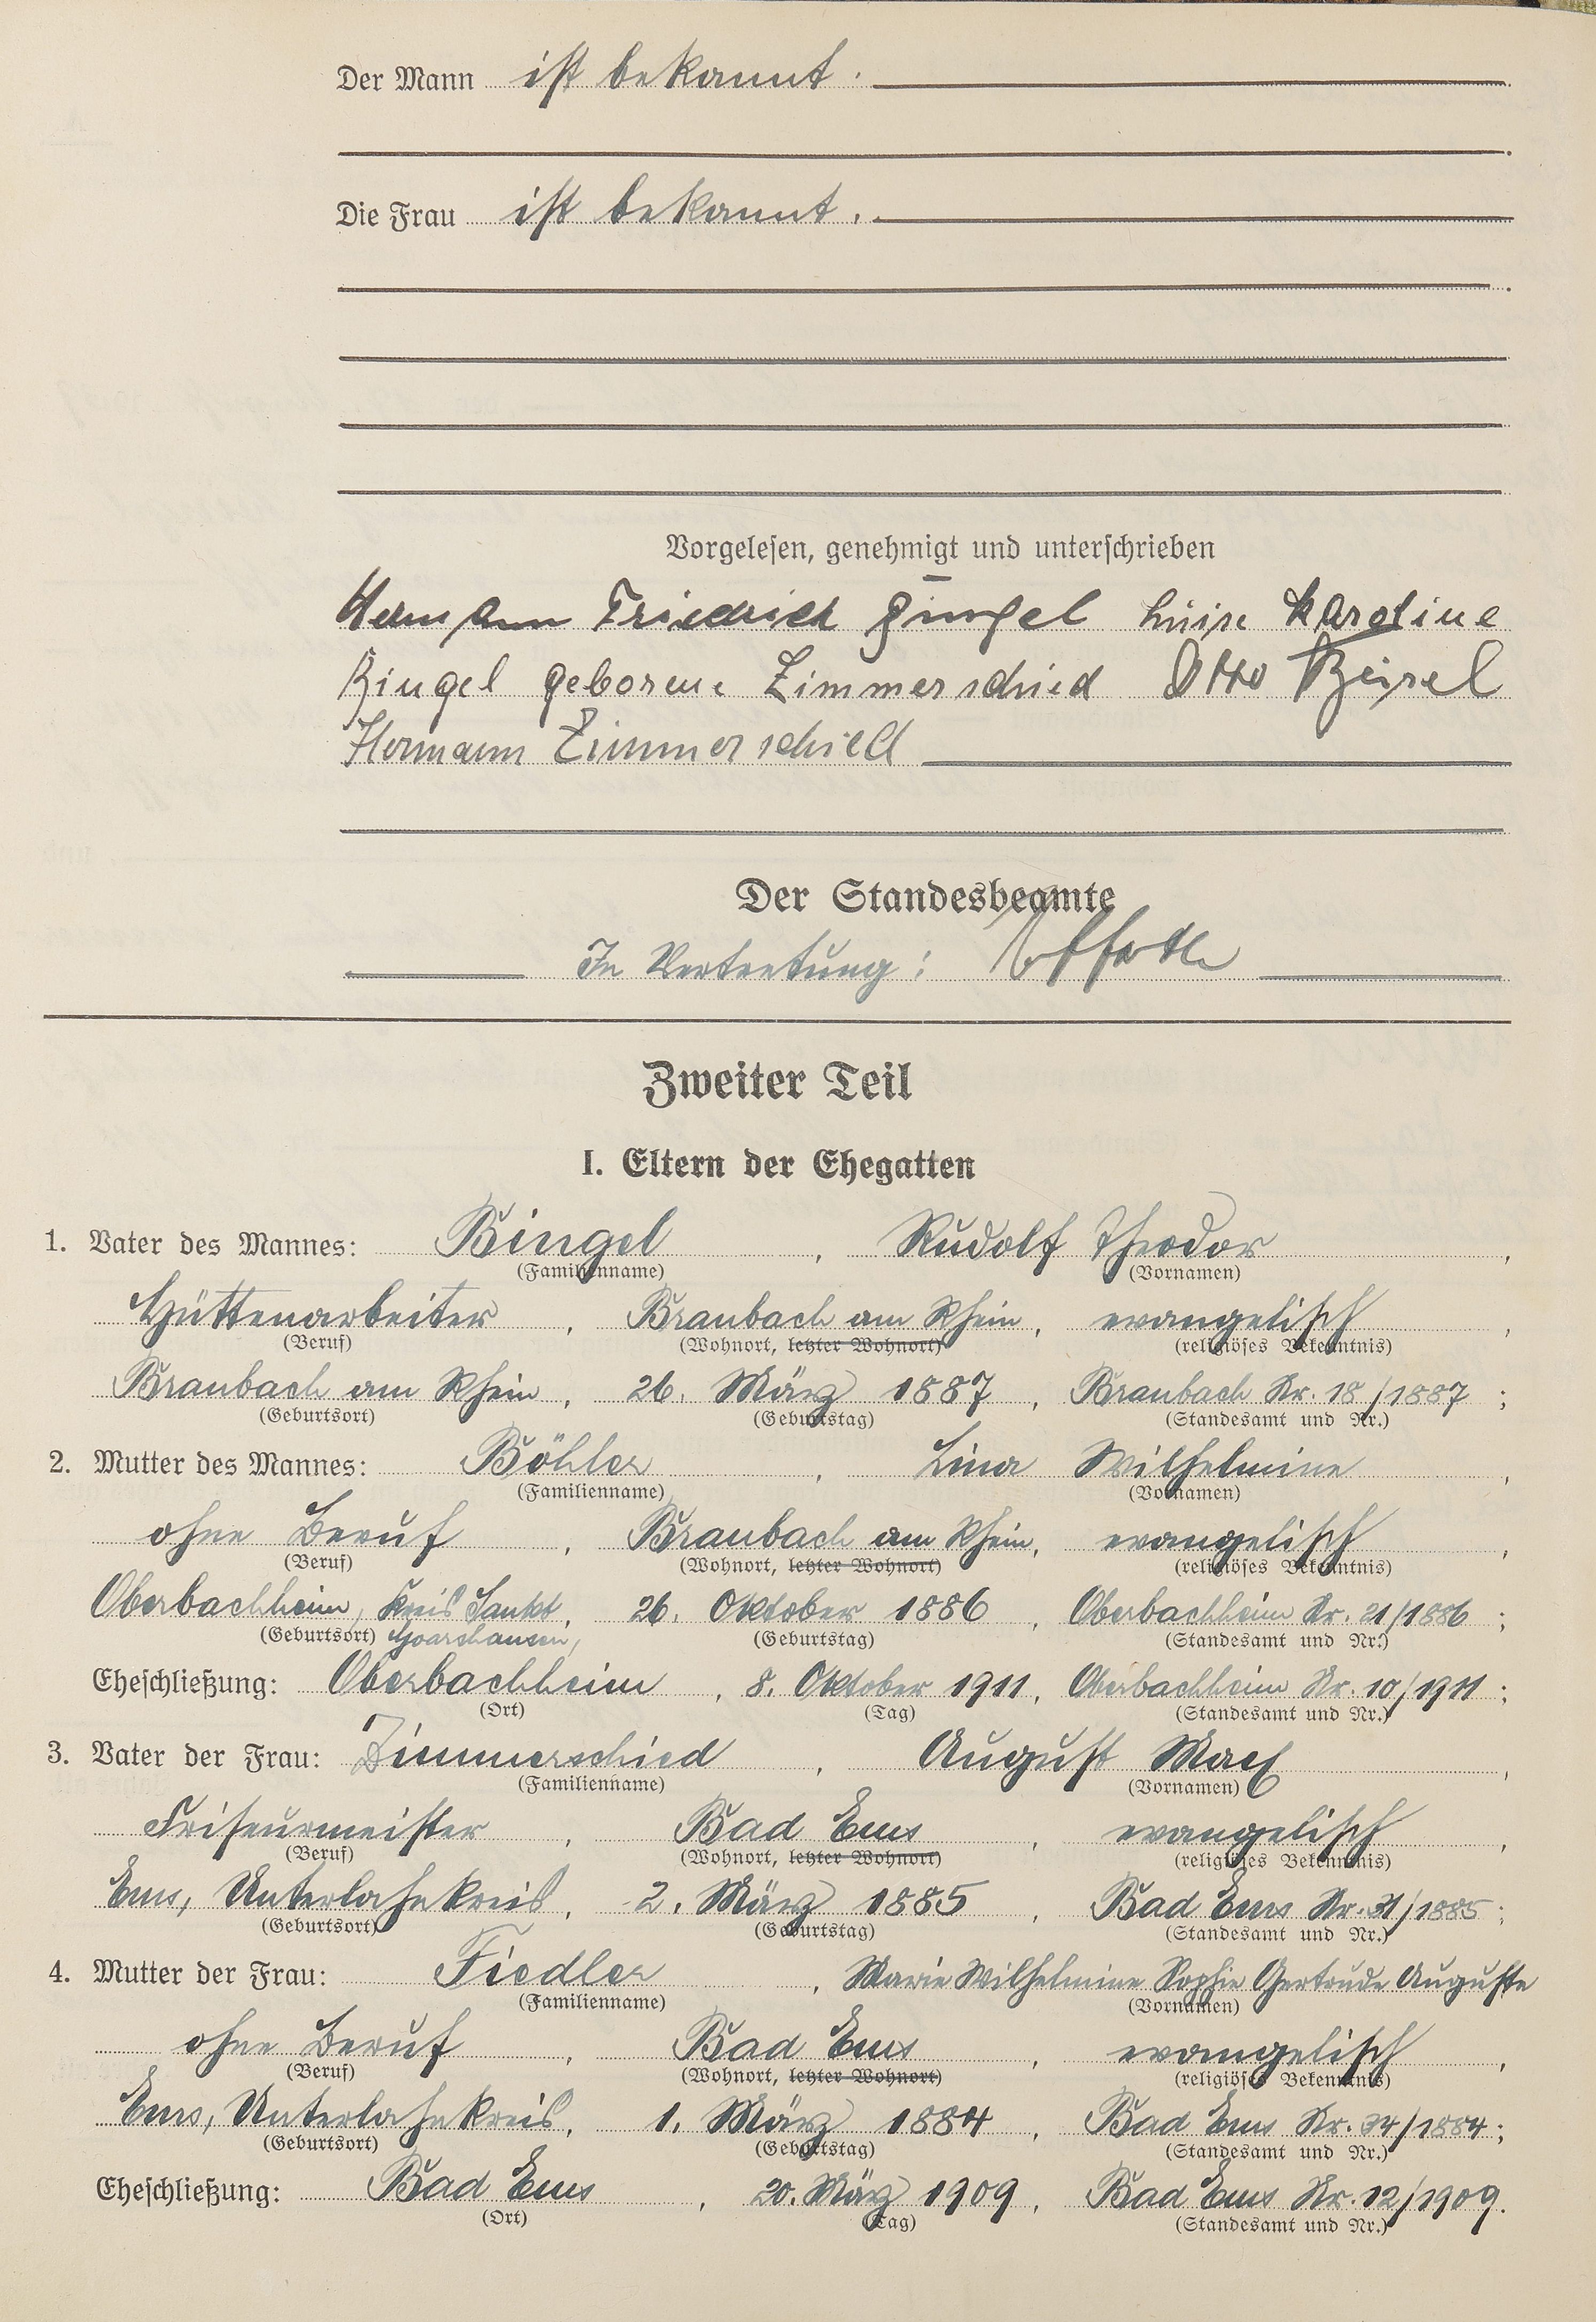 Der Mann ist bekannt.
Die Frau ist bekannt.
Vorgelesen, genehmigt und unterschrieben
Hermann Friedrich Bingel Luise Karoline
Bingel geborene Zimmerschied Otto
Hermann Zimmerschied
Der Standesbeamte
In Vertretung:
Zweiter Teil
I. Eltern der Ehegatten
1. Vater des Mannes: Bingel, Rudolf Theodor,
(Familienname) (Vornamen)
Hüttenarbeiter, Braubach am Rhein, evangelisch,
(Beruf) (Wohnort, letzter Wohnort) (religiöses Bekenntnis)
Braubach am Rhein, 26. März 1887, Braubach Nr. 18/1887;
(Geburtsort) (Geburtstag) (Standesamt und Nr.)
2. Mutter des Mannes: Böhler, Lina Wilhelmine,
(Familienname) (Vornamen)
ohne Beruf, Braubach am Rhein, evangelisch,
(Beruf) (Wohnort, letzter Wohnort) (religiöses Bekenntnis)
Oberbachheim, Kreis Sankt, 26. Oktober 1886, Oberbachheim Nr. 21/1886;
(Geburtsort) Goarshausen, (Geburtstag) (Standesamt und Nr.)
Eheschließung: Oberbachheim, 8. Oktober 1911, Oberbachheim Nr. 10/1911;
(Ort) (Tag) (Standesamt und Nr.)
3. Vater der Frau: Zimmerschied, August Max,
(Familienname) (Vornamen)
Friseurmeister, Bad Ems, evangelisch,
(Beruf) (Wohnort, letzter Wohnort) (religiöses Bekenntnis)
Ems, Unterlahnkreis, 2. März 1885, Bad Ems Nr. 31/1885;
(Geburtsort) (Geburtstag) (Standesamt und Nr.)
4. Mutter der Frau: Fiedler, Marie Wilhelmine Sophie Gertrude Auguste
(Familienname) (Vornamen)
ohne Beruf, Bad Ems, evangelisch,
(Beruf) (Wohnort, letzter Wohnort) (religiöses Bekenntnis)
Ems, Unterlahnkreis, 1. März 1884, Bad Ems Nr. 34/1884;
(Geburtsort) (Geburtstag) (Standesamt und Nr.)
Eheschließung: Bad Ems, 20. März 1909, Bad Ems Nr. 12/1909.
(Ort) (Tag) (Standesamt und Nr.)